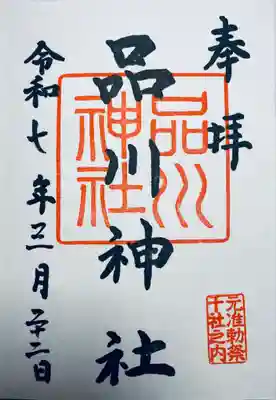 奉拝
品川神社
品川神社
令和七年三月二十二日
元准勅祭
十社之内